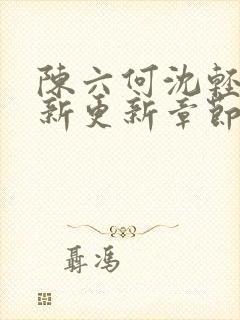 陳六何沈輕
新更新章節
聶馮